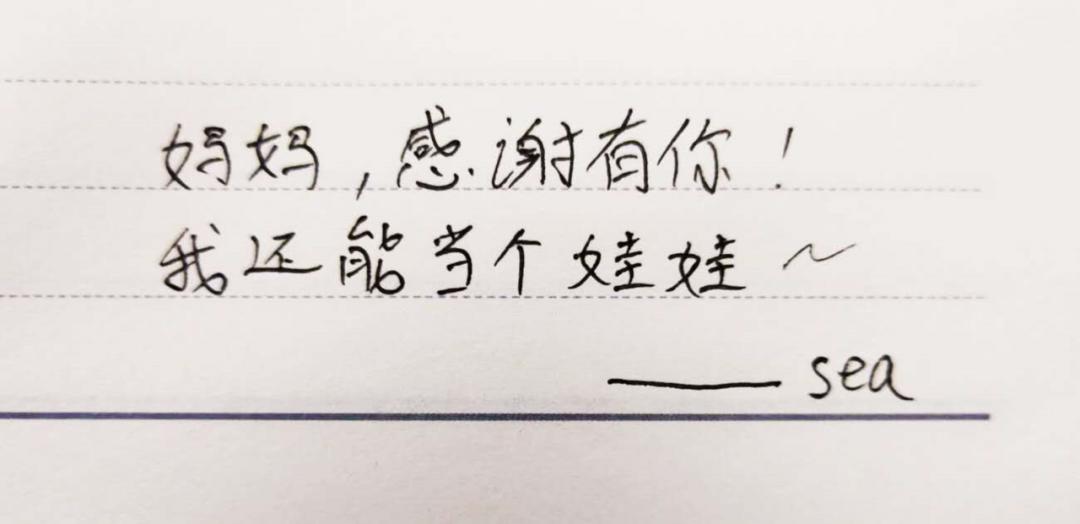 妈妈,感谢有你!
我还能当个娃娃~
——sea